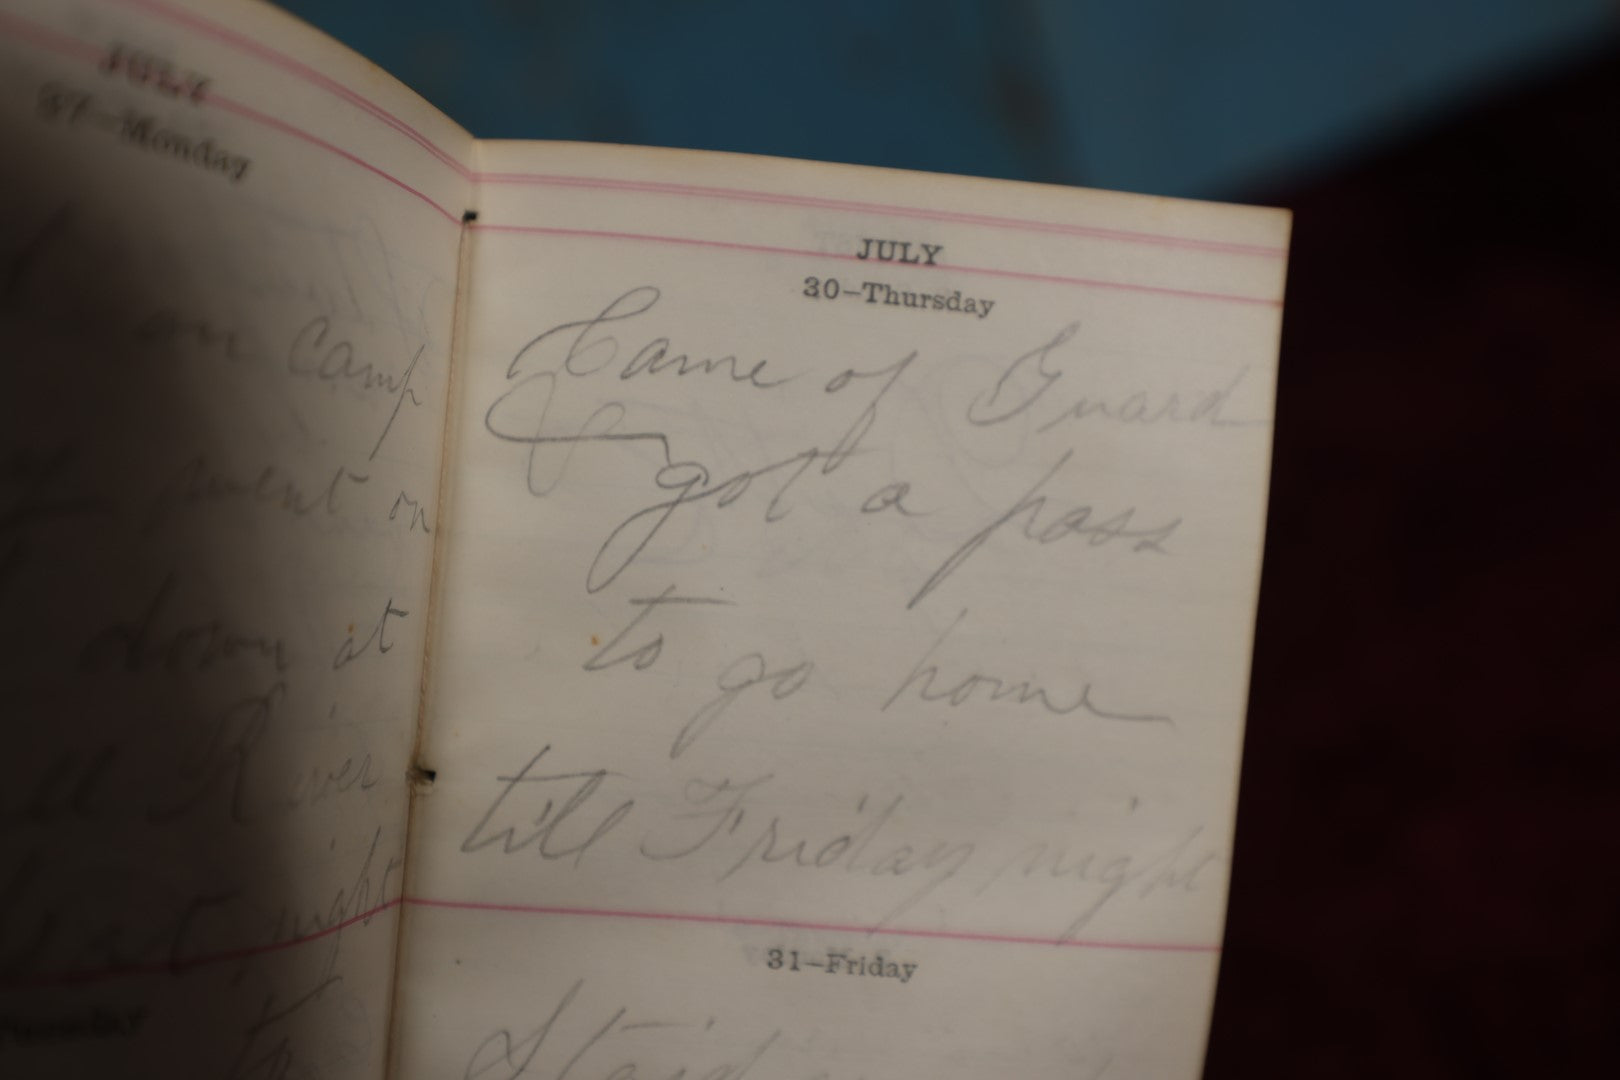 JULY
27—Monday
on camp
went on
down at
River
night
JULY
30—Thursday
Came of Guard
got a pass
to go home
till Friday night
31—Friday
Staid